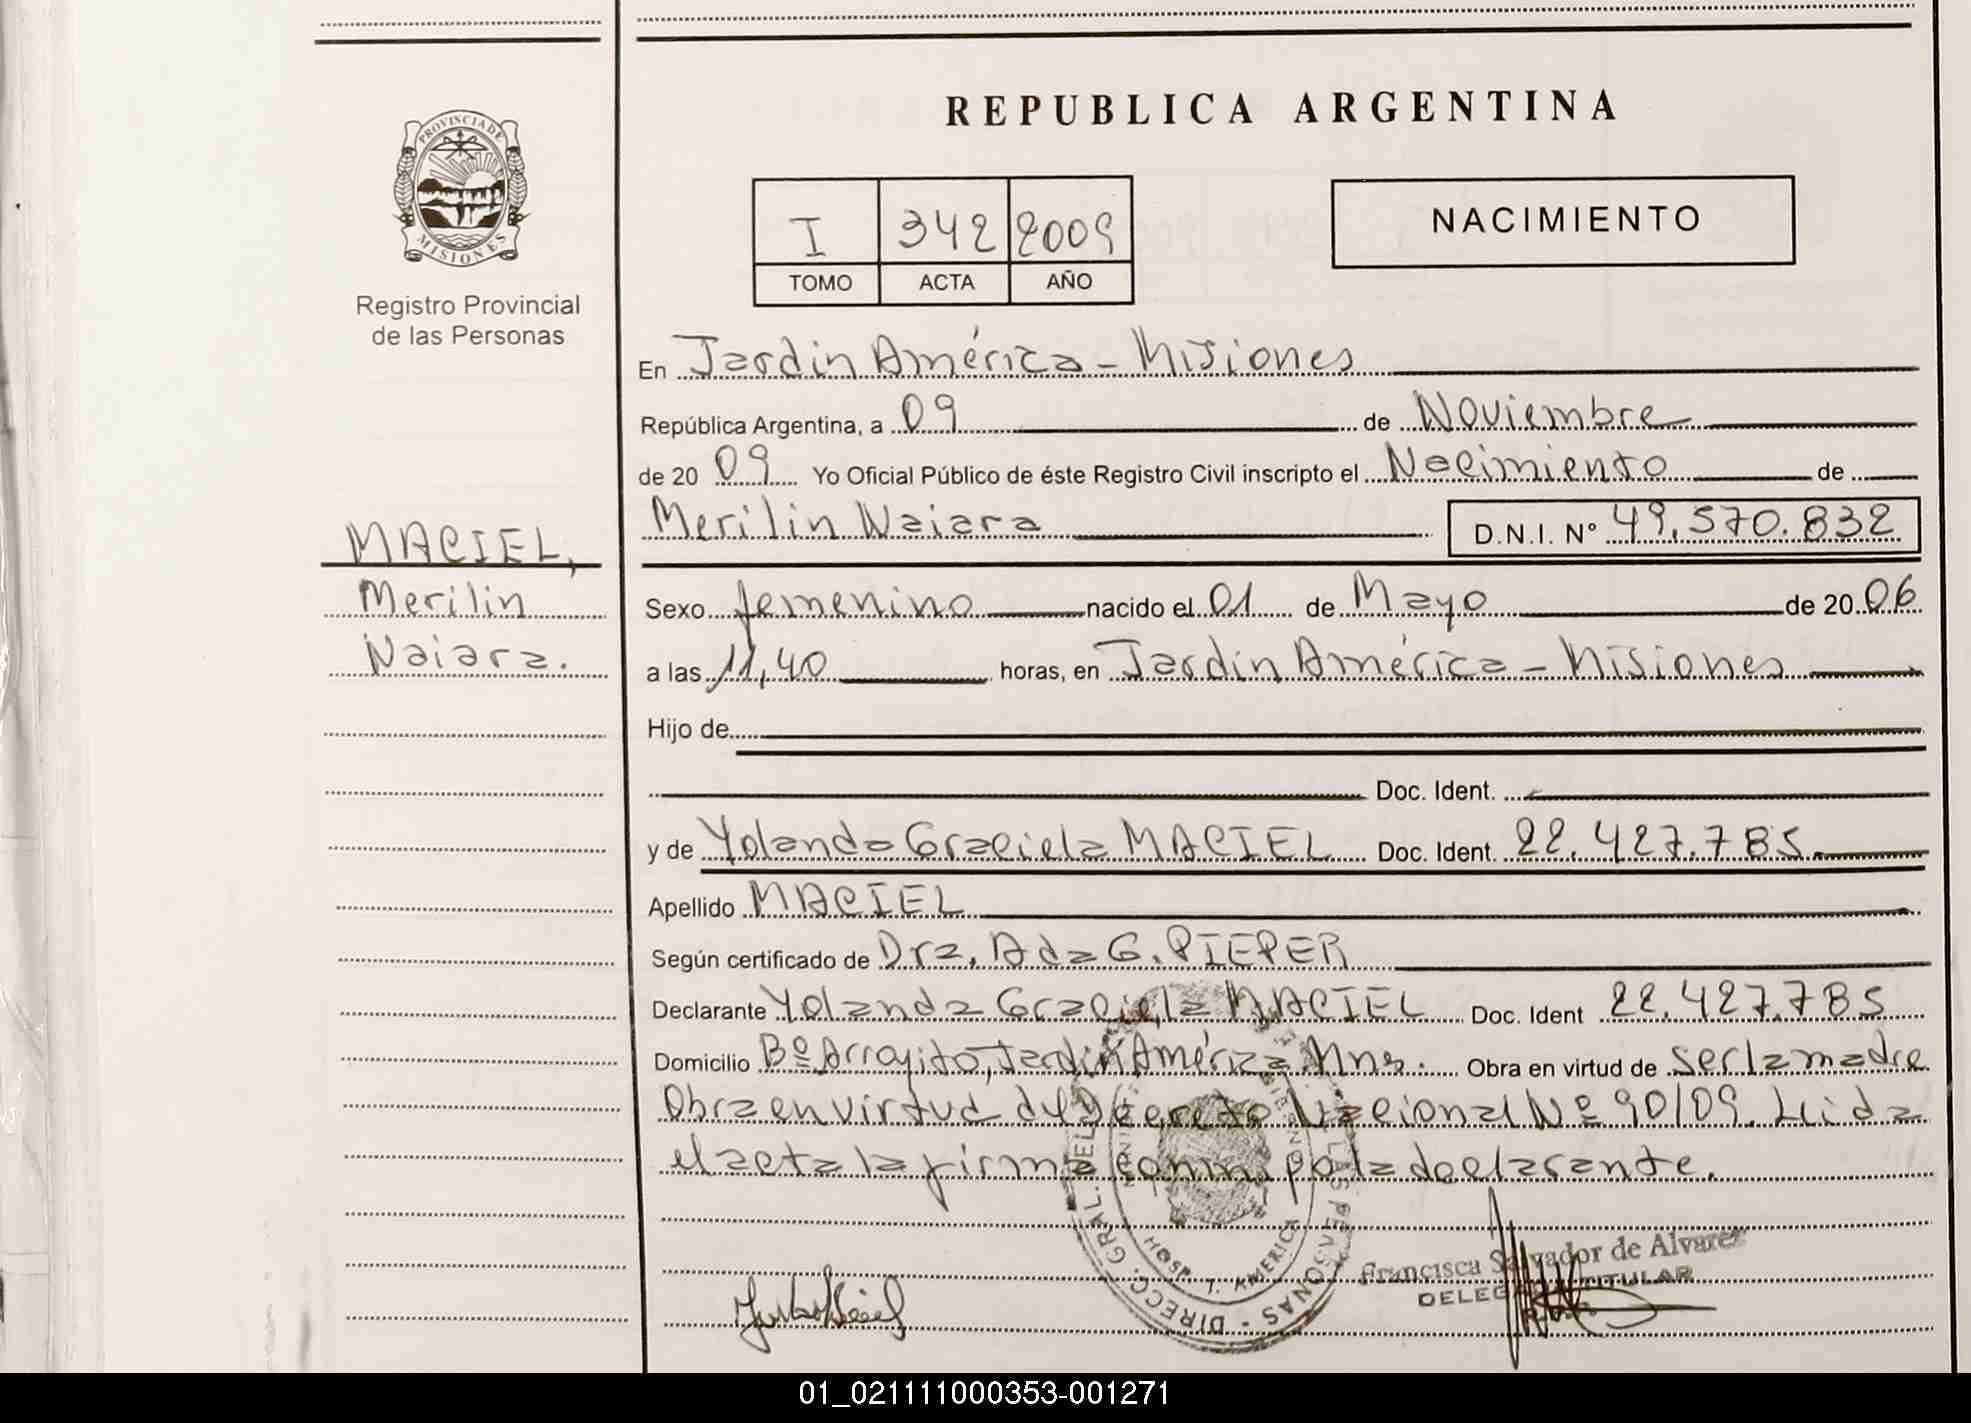 PROVINCIA DE
MISIONES
Registro Provincial
de las Personas
REPUBLICA ARGENTINA
I 342 2009
TOMO ACTA AÑO
NACIMIENTO
En Jardin América - Misiones
República Argentina, a 09 de Noviembre
de 20 09 Yo Oficial Público de éste Registro Civil inscripto el Nacimiento de
Merilin Naiara D.N.I. Nº 49.570.832
MACIEL,
Merilin
Naiara.
Sexo femenino nacido el 01 de Mayo de 20 06
a las 11,40 horas, en Jardin América - Misiones
Hijo de
Doc. Ident.
y de Yolanda Graciela MACIEL Doc. Ident. 22.427.785
Apellido MACIEL
Según certificado de Dra. Ada G. PIEPER
Declarante Yolanda Graciela MACIEL Doc. Ident 22.427.785
Domicilio Bº Arroyito, Jardin América, Mns. Obra en virtud de ser la madre
Obra en virtud del Decreto Nacional Nº 90/09. Leida
el acta la firma conmigo la declarante.
DIRECC. GRAL. DEL LAS PERSONAS
HOSP. J. AMERICA
Francisca Salvador de Alvarez
DELEGADA TITULAR
01_021111000353-001271